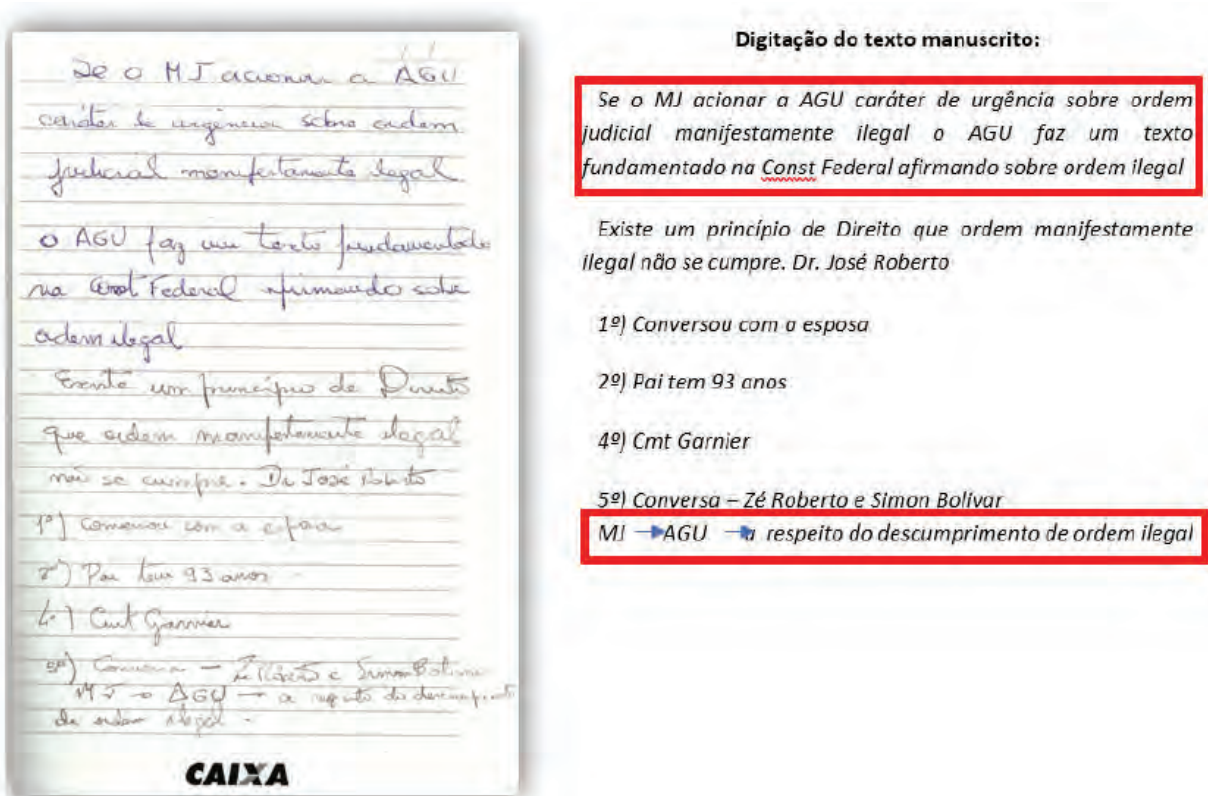 Se o MJ acionar a AGU
caráter de urgência sobre ordem
judicial manifestamente ilegal
o AGU faz um texto fundamentado
na Const Federal afirmando sobre
ordem ilegal
Existe um princípio de Direito
que ordem manifestamente ilegal
não se cumpre. Dr José Roberto
1º) Conversou com a esposa
2º) Pai tem 93 anos
4º) Cmt Garnier
5º) Conversa – Zé Roberto e Simon Bolivar
MJ → AGU → a respeito do descumprimento
de ordem ilegal.
CAIXA
Digitação do texto manuscrito:
Se o MJ acionar a AGU caráter de urgência sobre ordem
judicial manifestamente ilegal o AGU faz um texto
fundamentado na Const Federal afirmando sobre ordem ilegal
Existe um princípio de Direito que ordem manifestamente
ilegal não se cumpre. Dr. José Roberto
1º) Conversou com a esposa
2º) Pai tem 93 anos
4º) Cmt Garnier
5º) Conversa – Zé Roberto e Simon Bolivar
MJ → AGU → a respeito do descumprimento de ordem ilegal